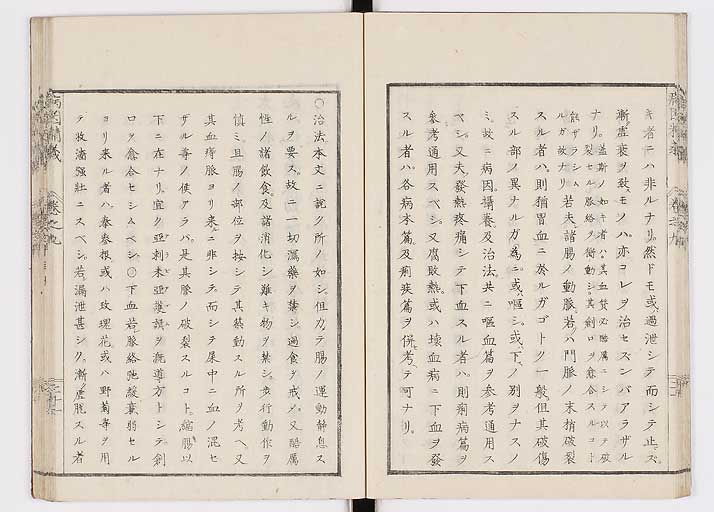 キ者ニハ非ルナリ。然ドモ或ハ過泄シテ而シテ止ズ。
漸ク虚衰ヲ致スモノハ亦コレヲ治セズンバアラザル
ナリ。蓋斯ノ如キ者ハ其血必酷厲ニシテ以テ破
裂セル脈絡ヲ衝動シ其創口ヲ愈合スルコト
能ザラシムルガ故ナリ
若夫諸腸ノ動脈若クハ門脈ノ末梢破裂
スル者ハ則猶冒血ニ於ルガゴトク一般但其破傷
スル部ノ異ナルガ為ニ或ハ嘔シ或ハ下スノ別ヲナスノ
ミ故ニ病因攝養及治法共ニ嘔血篇ヲ参考通用ス
ベシ。又夫發熱疼痛シテ下血スル者ハ則痢病篇ヲ
参考通用スベシ。又腐敗熱或ハ壊血病ニ下血ヲ發
スル者ハ各病本篇及痢疾篇ヲ併考テ可ナリ。
○治法本文ニ説ク所ノ如シ。但力テ腸ノ運動静息ス
ルヲ要ス。故ニ一切瀉藥ヲ禁シ過食ヲ戒メ又酷厲
性ノ諸飲食及諸消化シ難キ物ヲ禁シ歩行動作ヲ
慎ミ且腸ノ部位ヲ按シテ其紮動スル所ヲ考ヘ又
其血痔脈ヨリ来ニ非シテ而シテ屎中ニ血ノ混セ
ザル等ノ候アラバ是其脈ノ破裂スルコト結腸以
下ニ在ナリ。宜ク亜刺未亜護謨ヲ灌導方トシテ創
口ヲ愈合セシムベシ○下血若脈絡弛緩衰弱セル
ヨリ来ル者ハ
根或ハ玫瑰花或ハ野菊等ヲ用
テ收濇強壮ニスベシ。若漏泄甚シク漸ク虚脱スル者
病因精義
巻之九